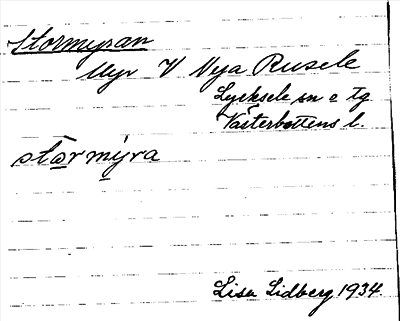 Stormyran
Myr V Nya Rusele
Lycksele sn o Tg
Västerbottens l.
stōrmýra
Lisa Lidberg 1934.